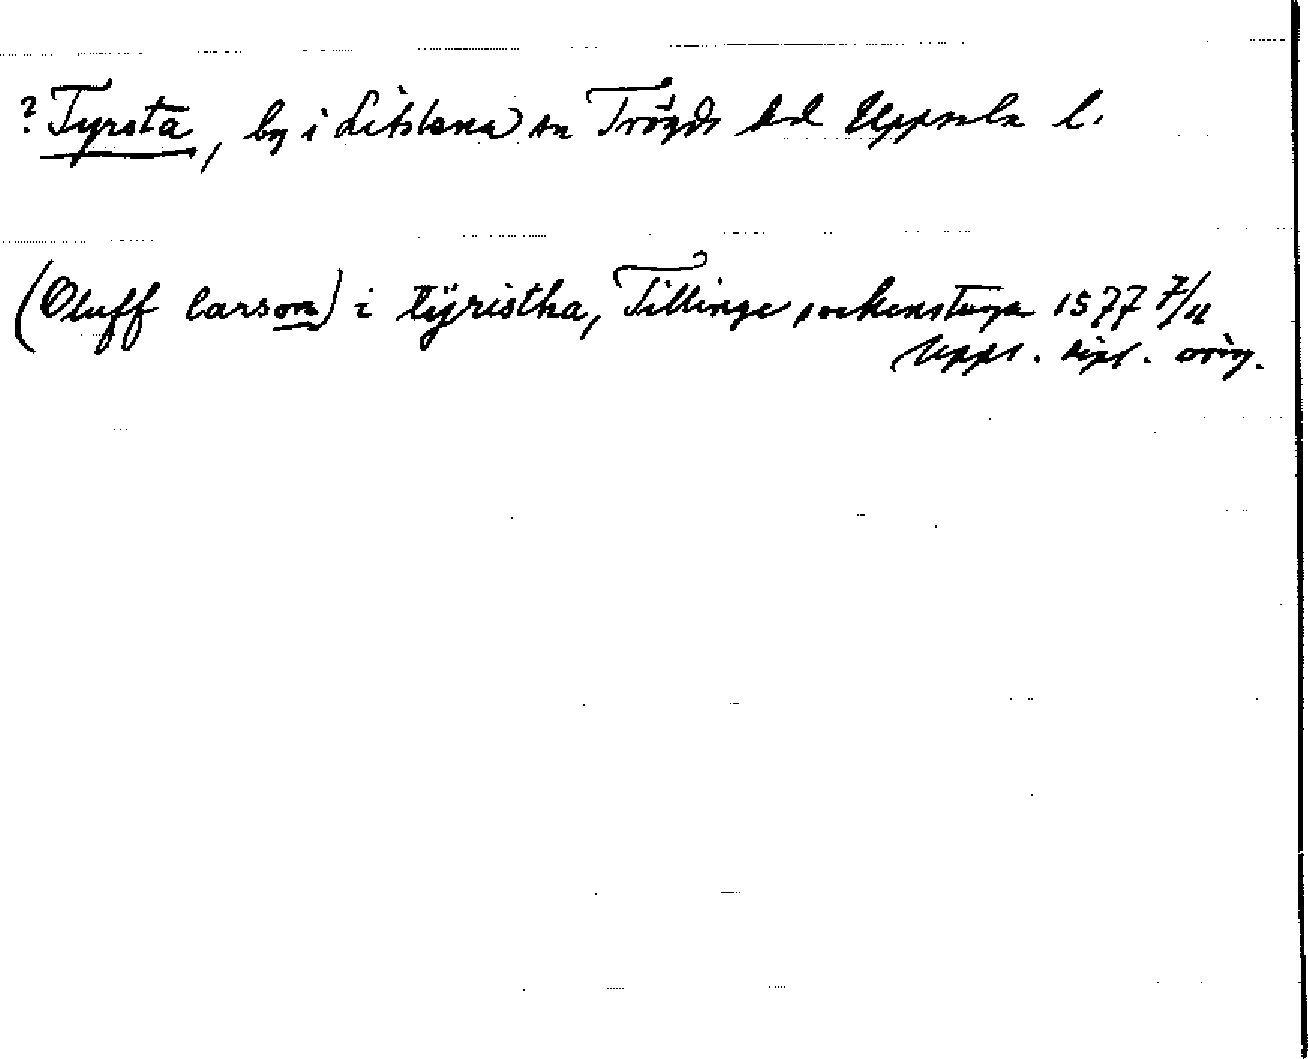 ? Tyrsta, by i Litslena sn Trögds hd Uppsala l.
(Oluff larson) i tÿristha, Tillinge sockenstuga 1577 7/11
Uppl. dipl. orig.